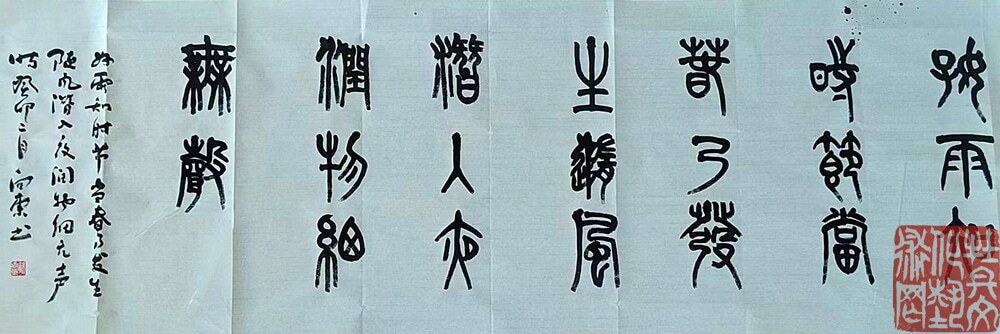 好雨知
時節當
春乃發
生隨風
潛入夜
潤物細
無聲
好雨知时节当春乃发生
随风潜入夜润物细无声
时癸卯二月向东书